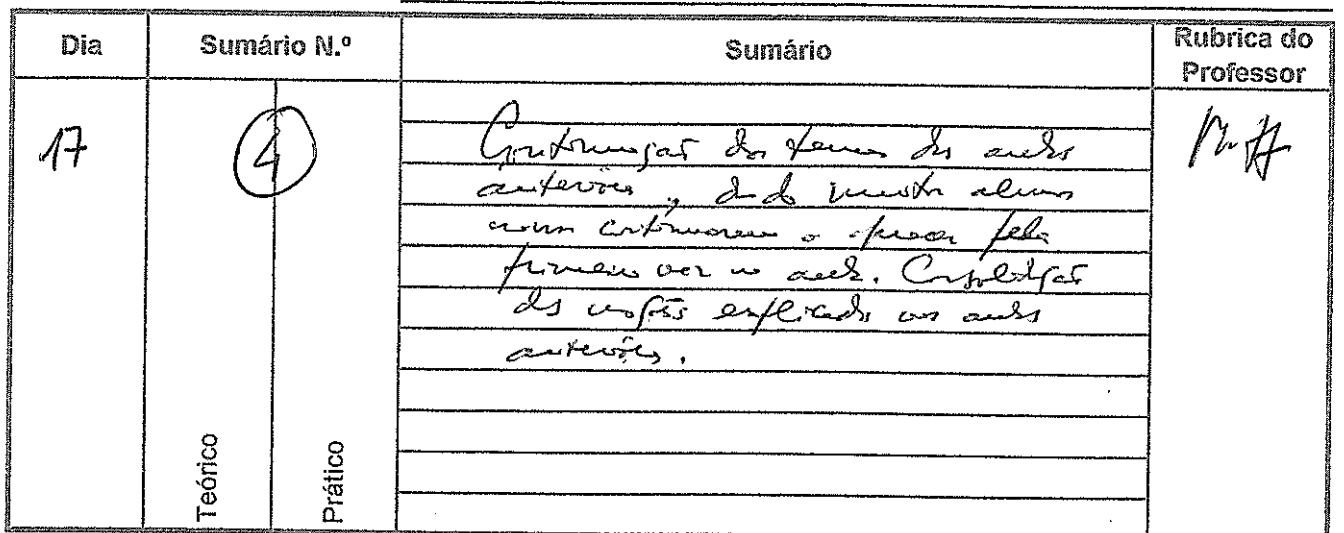 Dia
Sumário N.º
Sumário
Rubrica do
Professor
17
4
Continuação dos temas das aulas
anteriores, dado muitos alunos
novos continuarem a aparecer pela
primeira vez na aula. Consolidação
das noções explicadas nas aulas
anteriores.
Teórico
Prático